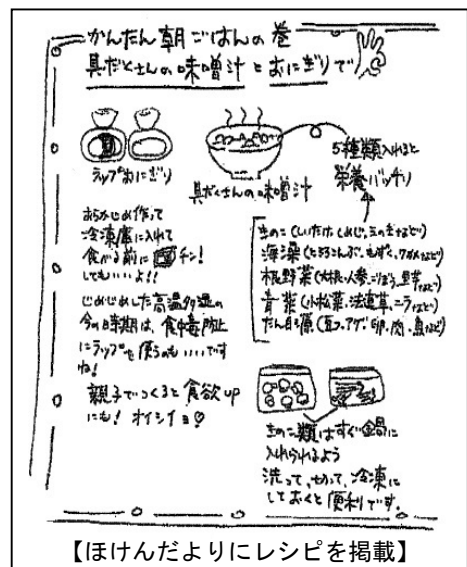 かんたん朝ごはんの巻
具だくさんの味噌汁とおにぎりで
ラップおにぎり
具だくさんの味噌汁
5種類入れると
栄養バッチリ
あらかじめ作って
冷凍庫に入れて
食べる前にチン!
してもいいよ!!
じめじめした高温多湿の
今の時期は、食中毒防止
にラップを使うのもいいです
ね!
親子でつくると食欲up
にも! オイシイヨ♡
きのこ(しいたけ、しめじ、えのきなど)
海藻(とろろこんぶ、もずく、ワカメなど)
根野菜(大根、人参、ごぼう、里芋など)
青菜(小松菜、法連草、ニラなど)
たん白源(豆フ、アゲ、卵、肉、魚など)
きのこ類はすぐ鍋に
入れられるよう
洗って、切って、冷凍に
しておくと便利です。
【ほけんだよりにレシピを掲載】